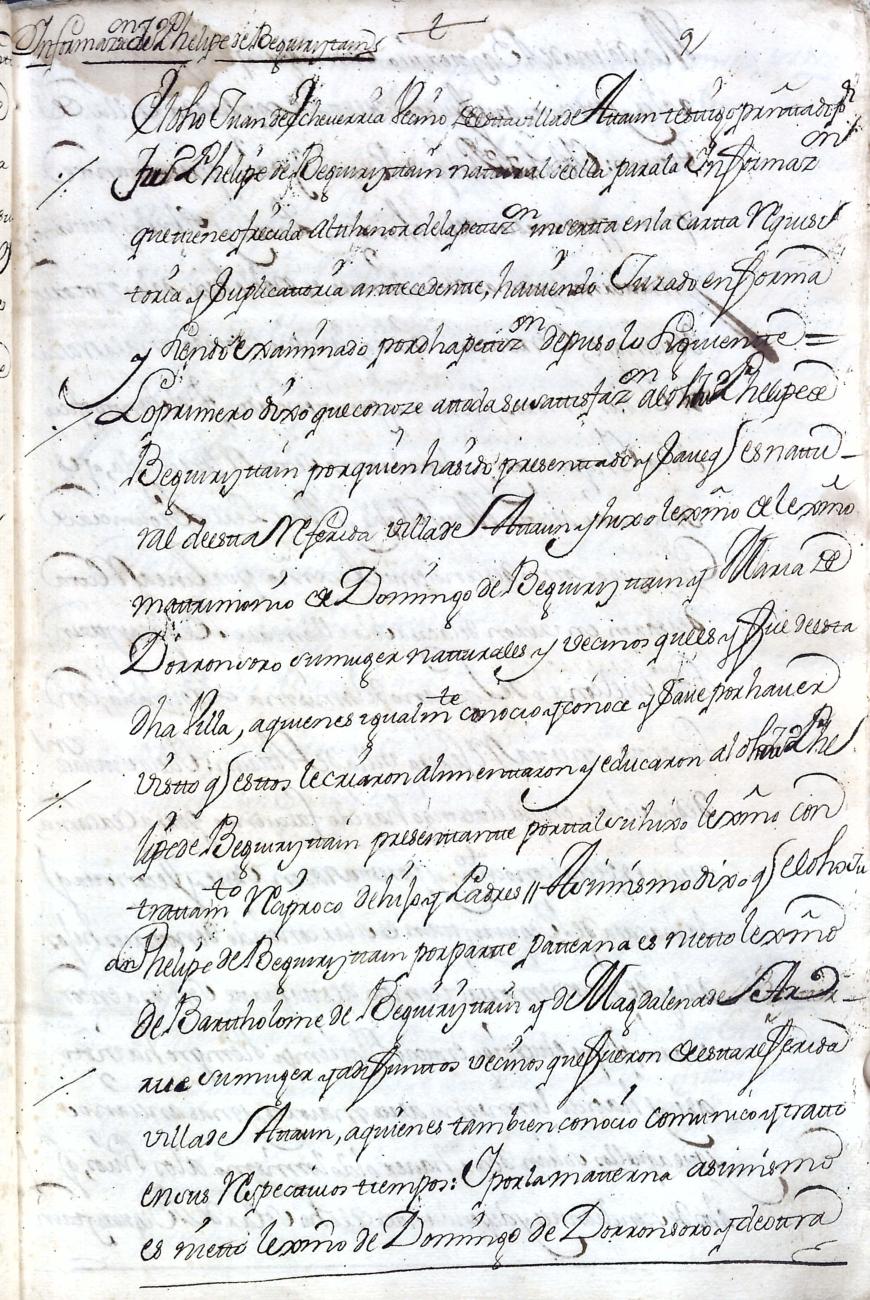 Informazon de Phelipe de Beguiryttain
9
El dho Juan de Echeverria vecino de esta villa de Attaun testigo presenttado por
Phelipe de Beguiryttain natural de ella para la Informazon
que tiene ofrecida al thenor de la pettizon inserta en la cartta Requisi
toria y suplicattoria anttecedentte, haviendo Jurado en forma
y siendo examinado por dha pettizon depuso lo siguientte =
Lo primero dixo que conoze a ttoda su sattisfazon al dho Phelipe de
Beguiryttain por quien ha sido presenttado y save q es nattu-
ral de esta Referida villa de Attaun y hixo lexmo de lexmo
mattrimonio de Domingo de Beguiryttain y Maria de
Dorronsoro su muger natturales y vecinos que es y fue de esta
dha Villa, a quienes igualmte conocio y conoce y save por haver
vistto q estos le criaron alimenttaron y educaron al dho Phe
lipe de Beguiryttain presenttante por tal su hixo lexmo con
trattamto Reciproco de hijo y Padres // Asimismo dixo q el dho
Phelipe de Beguiryttain por partte patterna es nietto lexmo
de Barttholome de Beguiryttain y de Magdalena de
su muger ya difunttos vecinos que fueron de esta referida
villa de Attaun, a quienes tambien conocio comunico y tratto
en sus Respectivos tiempos: I por la matterna asimismo
es nietto lexmo de Domingo de Dorronsoro y de ottra